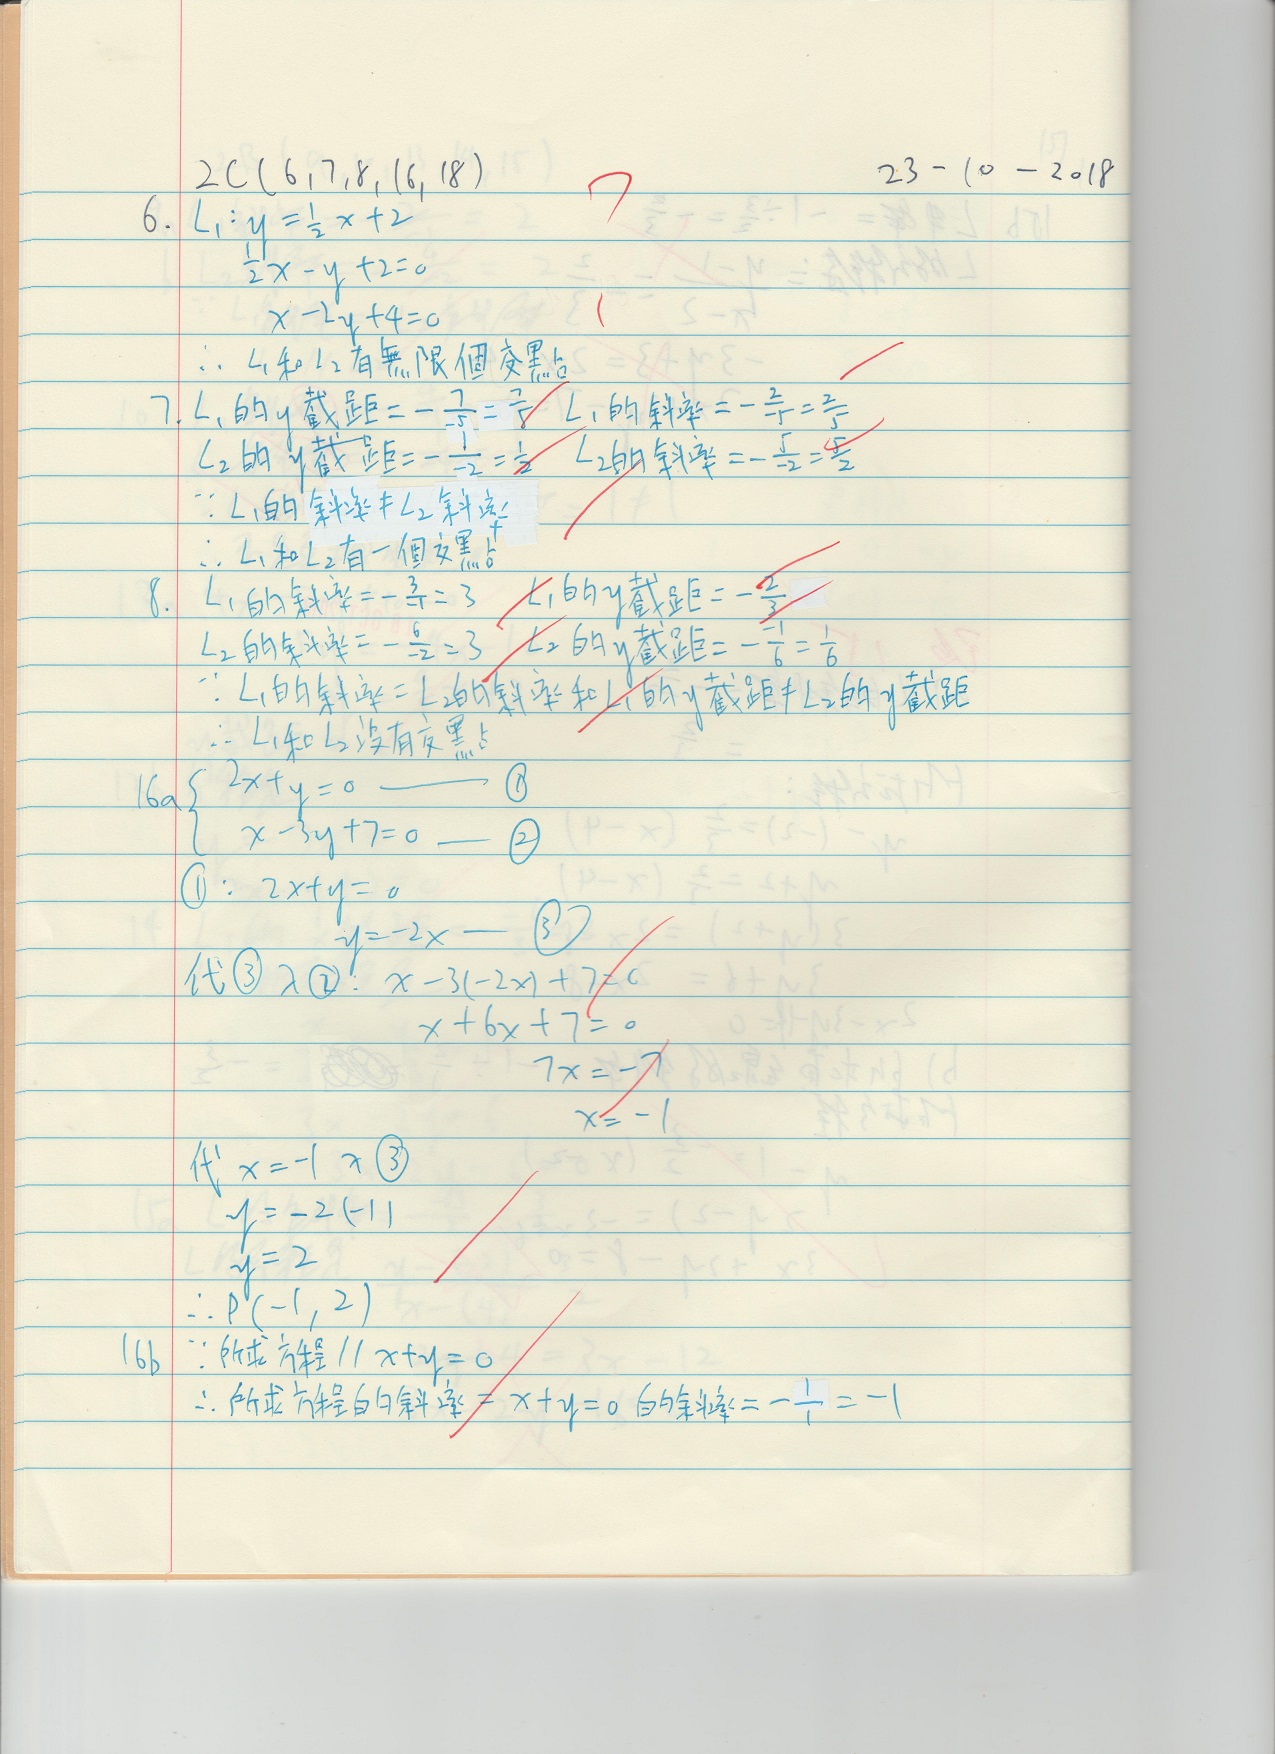 2C(6,7,8,16,18) 23-10-2018
6. L₁: y = 1/2 x + 2
1/2 x - y + 2 = 0
x - 2y + 4 = 0
∴ L₁和L₂有無限個交點
7. L₁的y截距 = - 7/-5 = 7/5 L₁的斜率 = - 2/-5 = 2/5
L₂的y截距 = - 1/-2 = 1/2 L₂的斜率 = - 5/-2 = 5/2
∵ L₁的斜率 ≠ L₂斜率
∴ L₁和L₂有一個交點
8. L₁的斜率 = - 3/-1 = 3 L₁的y截距 = - 2/3
L₂的斜率 = - 6/-2 = 3 L₂的y截距 = - -1/6 = 1/6
∵ L₁的斜率 = L₂的斜率和L₁的y截距 ≠ L₂的y截距
∴ L₁和L₂沒有交點
16a { 2x + y = 0 —— ①
x - 3y + 7 = 0 — ②
①: 2x + y = 0
y = -2x — ③
代③入②: x - 3(-2x) + 7 = 0
x + 6x + 7 = 0
7x = -7
x = -1
代 x = -1 入③
y = -2(-1)
y = 2
∴ P(-1, 2)
16b ∵所求方程 // x + y = 0
∴所求方程的斜率 = x + y = 0 的斜率 = - 1/1 = -1